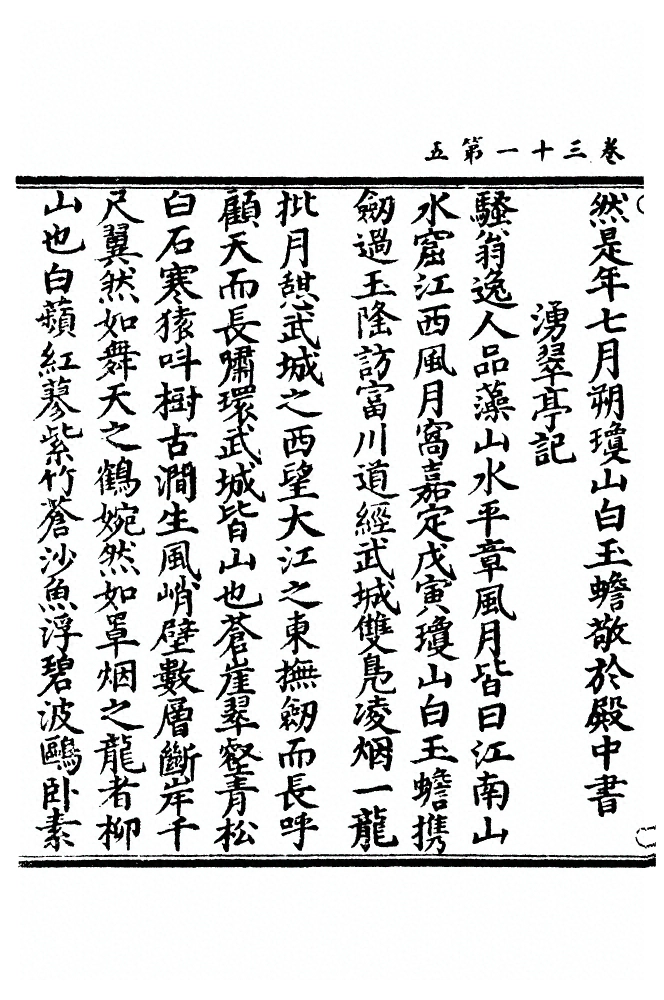 卷三十一第五
然是年七月朔瓊山白玉蟾敬於殿中書
湧翠亭記
騷翁逸人品藻山水平章風月皆曰江南山
水窟江西風月窩嘉定戊寅瓊山白玉蟾携
劒過玉隆訪富川道經武城雙鳬凌烟一龍
批月憇武城之西望大江之東撫劒而長呼
顧天而長嘯環武城皆山也蒼崖翠壑青松
白石寒猿呌樹古澗生風峭壁數層斷岸千
尺翼然如舞天之鶴婉然如罩烟之龍者柳
山也白蘋紅蓼紫竹蒼沙魚浮碧波鷗卧素